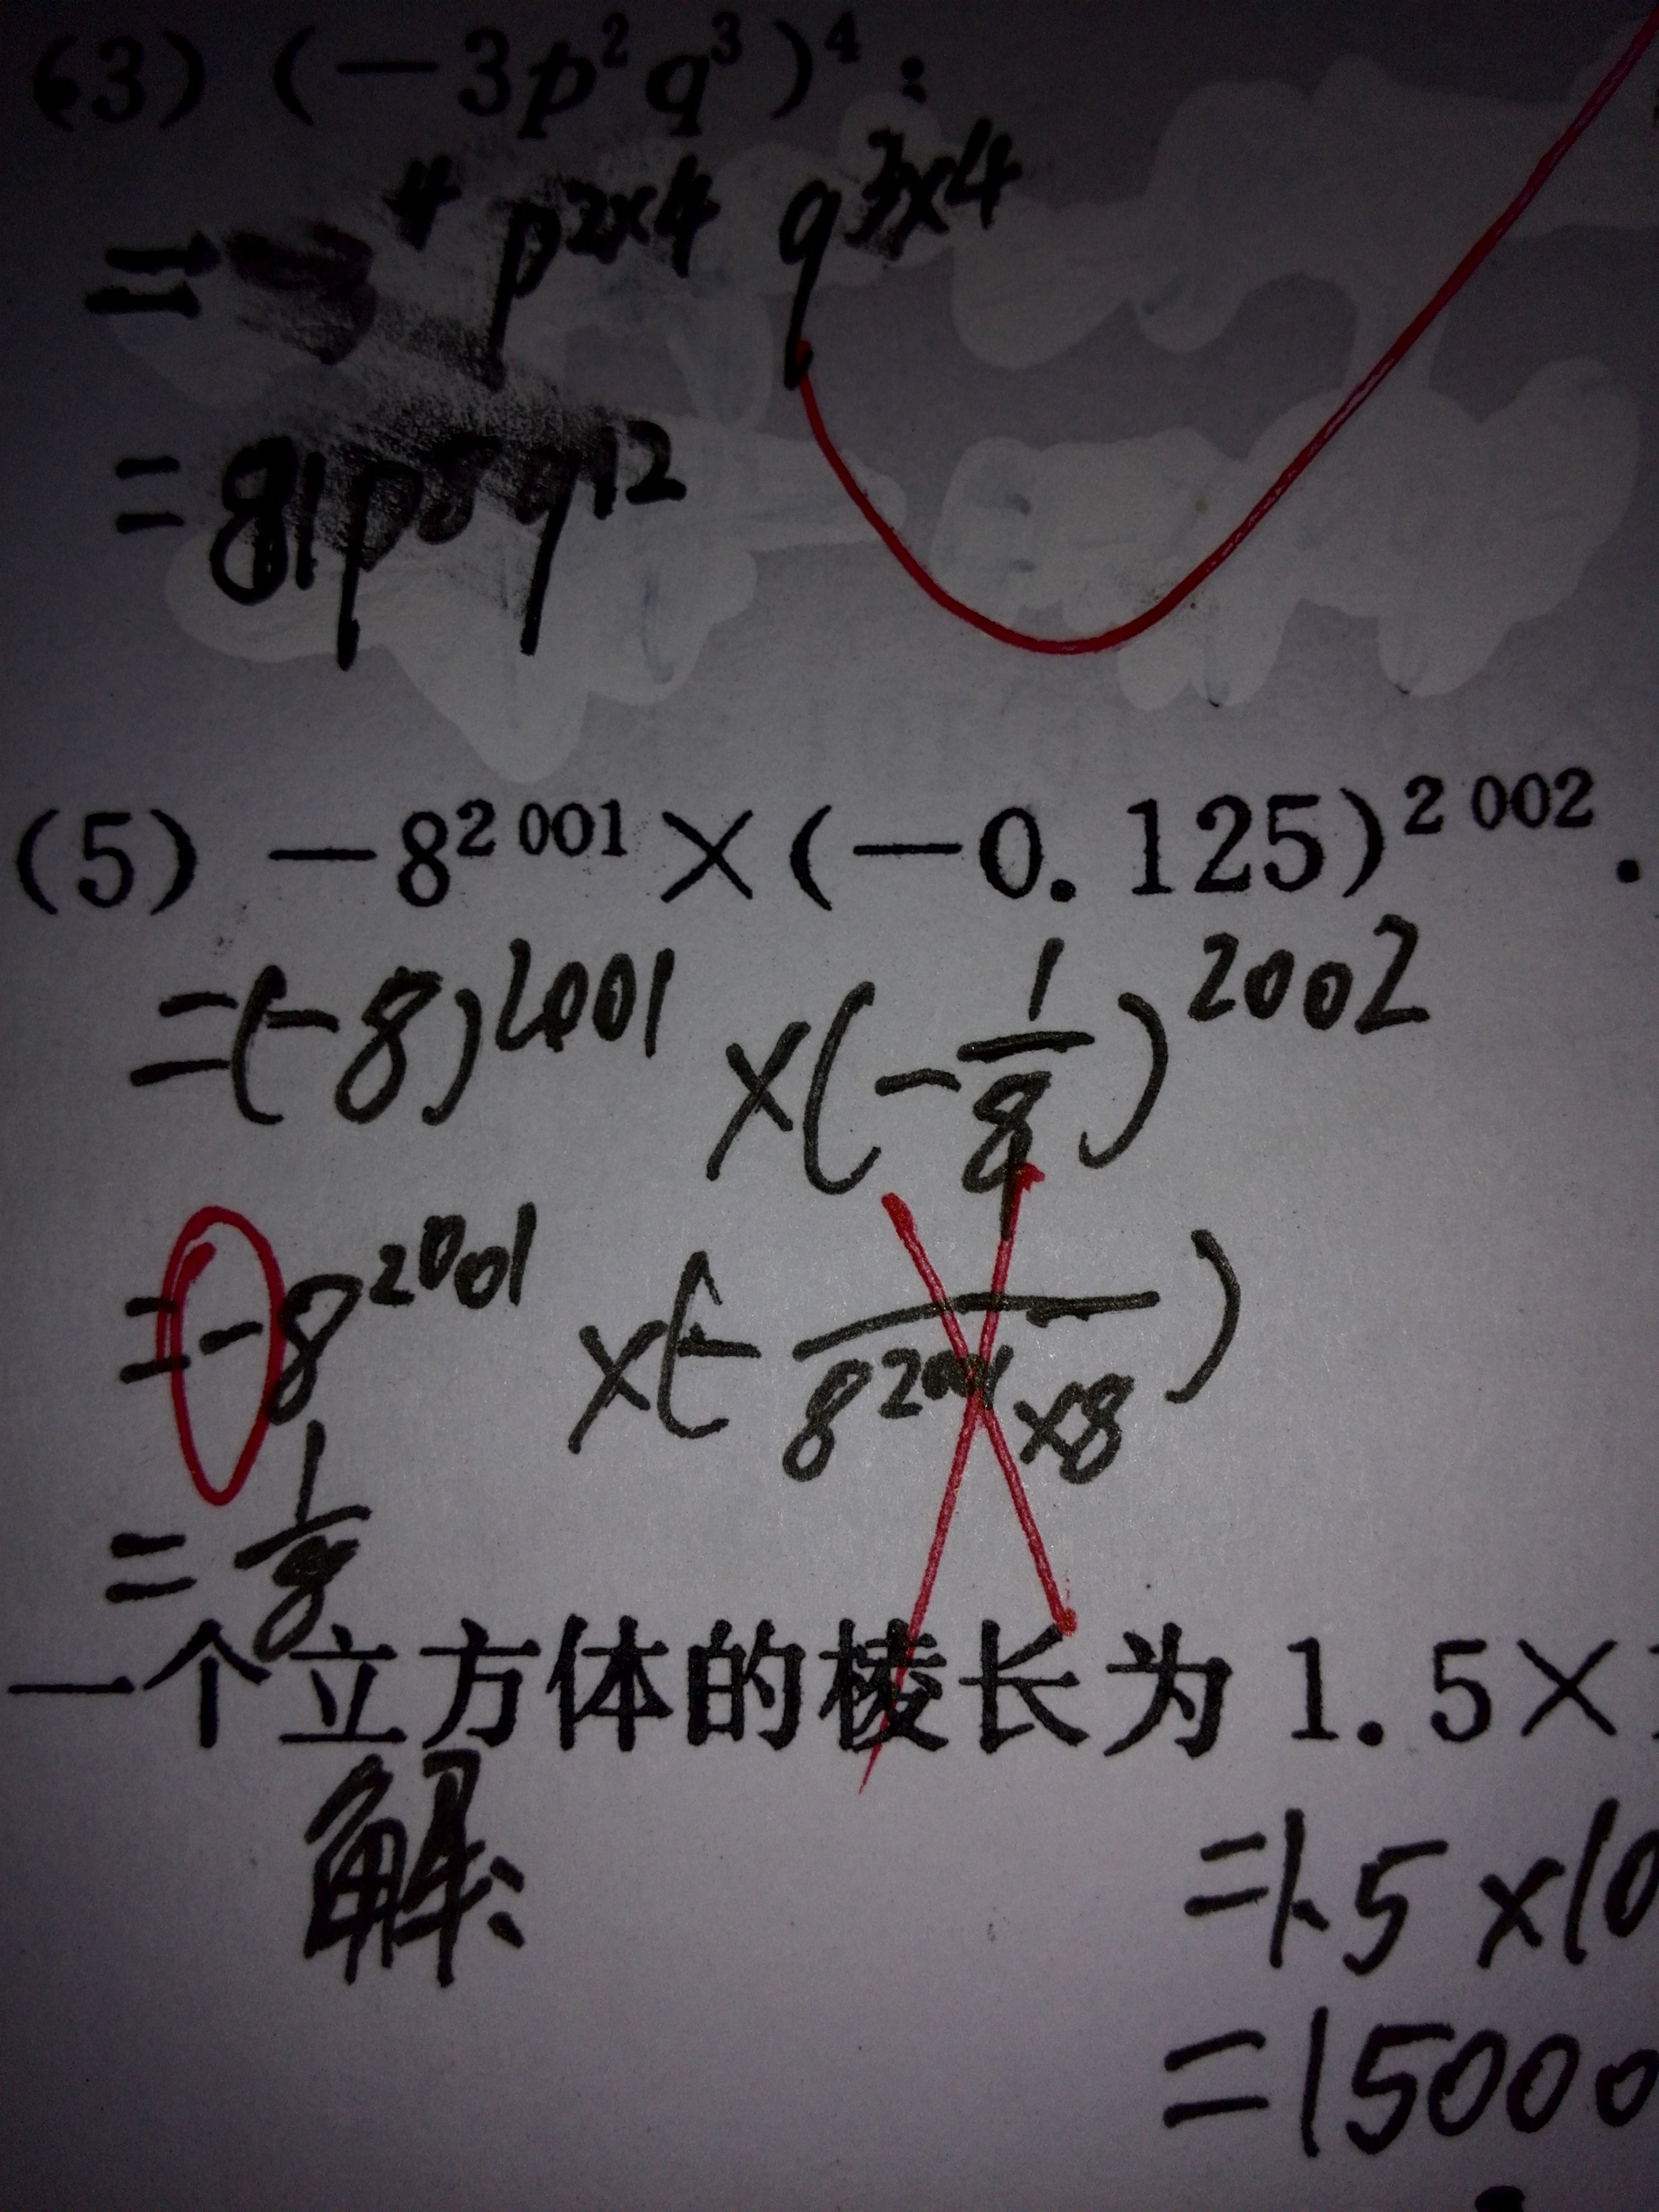 (3) (－3p²q³)⁴；
= 3⁴ p²ˣ⁴ q³ˣ⁴
= 81p⁸q¹²
(5) －8²⁰⁰¹×(－0.125)²⁰⁰².
=(-8)²⁰⁰¹ ×(-1/8)²⁰⁰²
=-8²⁰⁰¹ ×(- ―/8²⁰⁰¹×8)
= 1/8
一个立方体的棱长为 1.5×
解:
=1.5×10
=15000